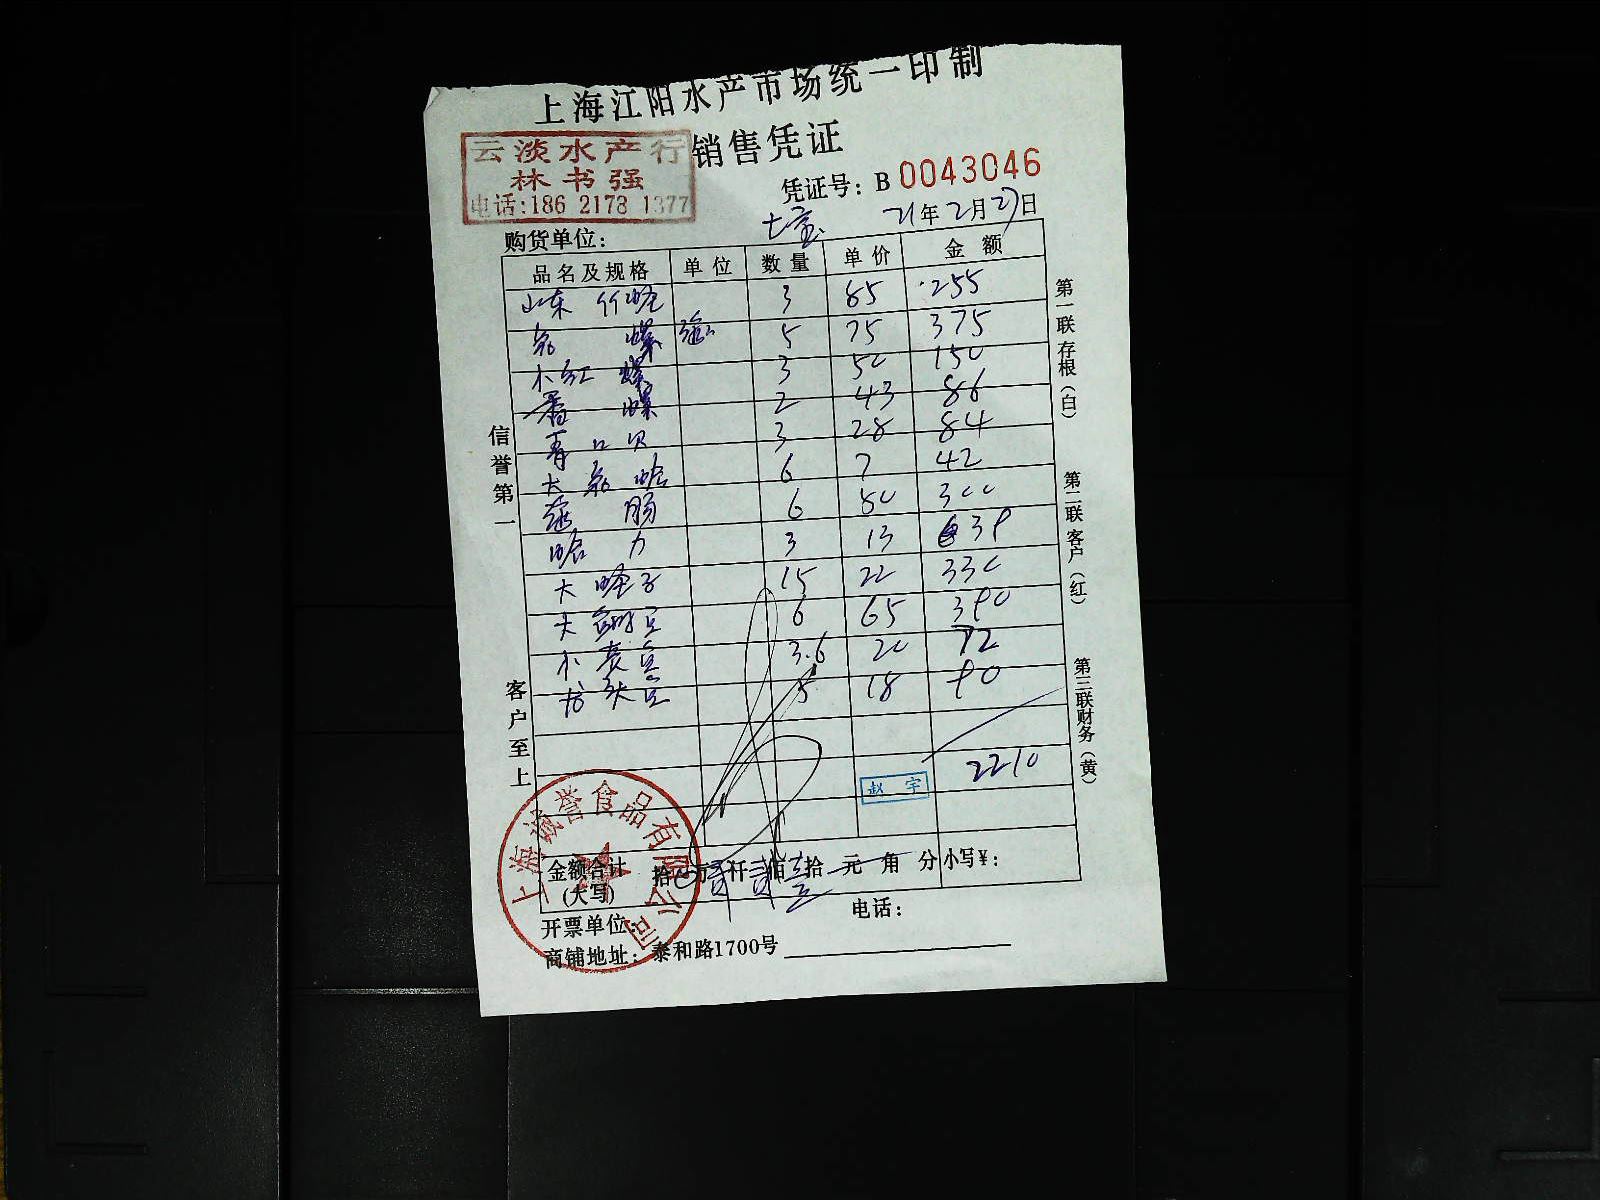 上海江阳水产市场统一印制
销售凭证
云淡水产行
林书强
电话:186 2173 1377
凭证号: B 0043046
七宝 21年2月27日
购货单位:
品名及规格 单位 数量 单价 金额
山东 竹蛏 3 85 255
螺 5 75 375
小红 螺 3 50 150
香 螺 2 43 86
青口贝 3 28 84
大 蛤 6 7 42
肠 6 50 300
蛤 力 3 13 39
大 蛏子 15 22 330
大 6 65 390
小 3.6 20 72
头 5 18 90
2210
赵宇
金额合计
(大写)
拾 万 贰仟 贰佰 壹拾 元 角 分 小写¥:
开票单位: 电话:
商铺地址: 泰和路1700号
上海诚誉食品有限公司
信誉第一
客户至上
第一联存根(白)
第二联客户(红)
第三联财务(黄)